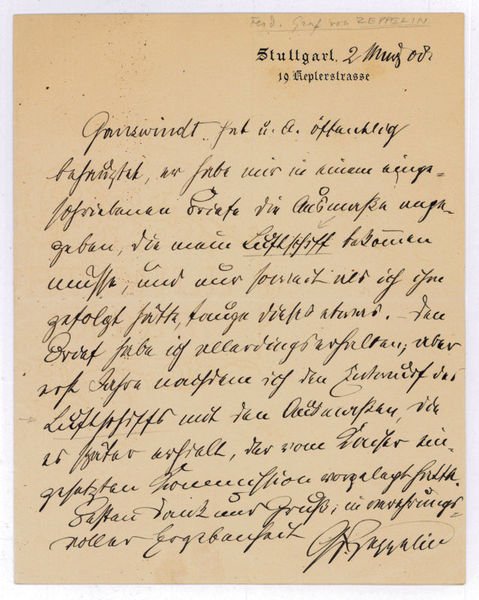 Ferd. Graf von ZEPPELIN
Stuttgart. 2 März 08.
19 Keplerstrasse
Ganswindt hat u. A. öffentlich
behauptet, er habe mir in einem einge-
schriebenen Briefe die Ausmaße ange-
geben, die mein Luftschiff bekommen
müsse, und nur soweit als ich ihm
gefolgt hätte, tauge dieses etwas. – Den
Brief habe ich allerdings erhalten, aber
erst Jahre nachdem ich den Entwurf des
Luftschiffs mit den Ausmaßen, die
es später erhielt, der vom Kaiser ein-
gesetzten Kommission vorgelegt hatte.
Besten Dank und Gruß, in verehrungs-
voller Ergebenheit Gf. Zeppelin